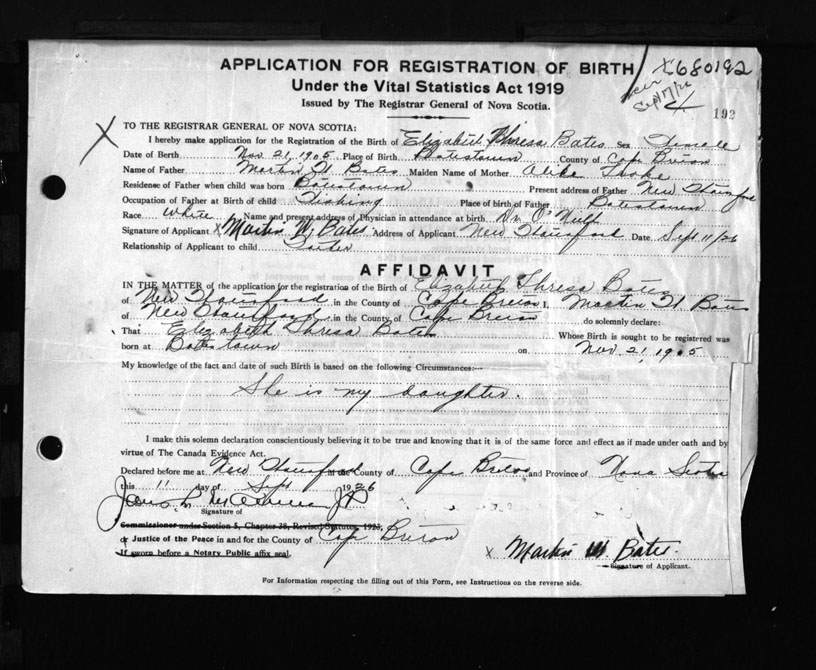 APPLICATION FOR REGISTRATION OF BIRTH X680192
Under the Vital Statistics Act 1919
Issued by The Registrar General of Nova Scotia.
Sept 17/26
192
X
TO THE REGISTRAR GENERAL OF NOVA SCOTIA:
I hereby make application for the Registration of the Birth of Elizabeth Thresa Bates Sex Female
Date of Birth Nov 21, 1905 Place of Birth Batestown County of Cape Breton
Name of Father Martin W Bates Maiden Name of Mother
Residence of Father when child was born Batestown Present address of Father New
Occupation of Father at Birth of child Fishing Place of birth of Father Batestown
Race White Name and present address of Physician in attendance at birth Dr
Signature of Applicant X Martin W. Bates Address of Applicant New Date Sept 11/26
Relationship of Applicant to child
AFFIDAVIT
IN THE MATTER of the application for the registration of the Birth of Elizabeth Thresa Bates
of New in the County of Cape Breton I, Martin W Bates
of New in the County of Cape Breton do solemnly declare:
That Elizabeth Thresa Bates Whose Birth is sought to be registered was
born at Batestown on Nov 21, 1905
My knowledge of the fact and date of such Birth is based on the following Circumstances:—
She is my daughter.
I make this solemn declaration conscientiously believing it to be true and knowing that it is of the same force and effect as if made under oath and by
virtue of The Canada Evidence Act.
Declared before me at New in the County of Cape Breton and Province of Nova Scotia
this 11 day of Sept 1926
JP
Signature of
Commissioner under Section 5, Chapter 38, Revised Statutes, 1923,
or Justice of the Peace in and for the County of Cape Breton
If sworn before a Notary Public affix seal.
X Martin W Bates.
Signature of Applicant.
For Information respecting the filling out of this Form, see Instructions on the reverse side.